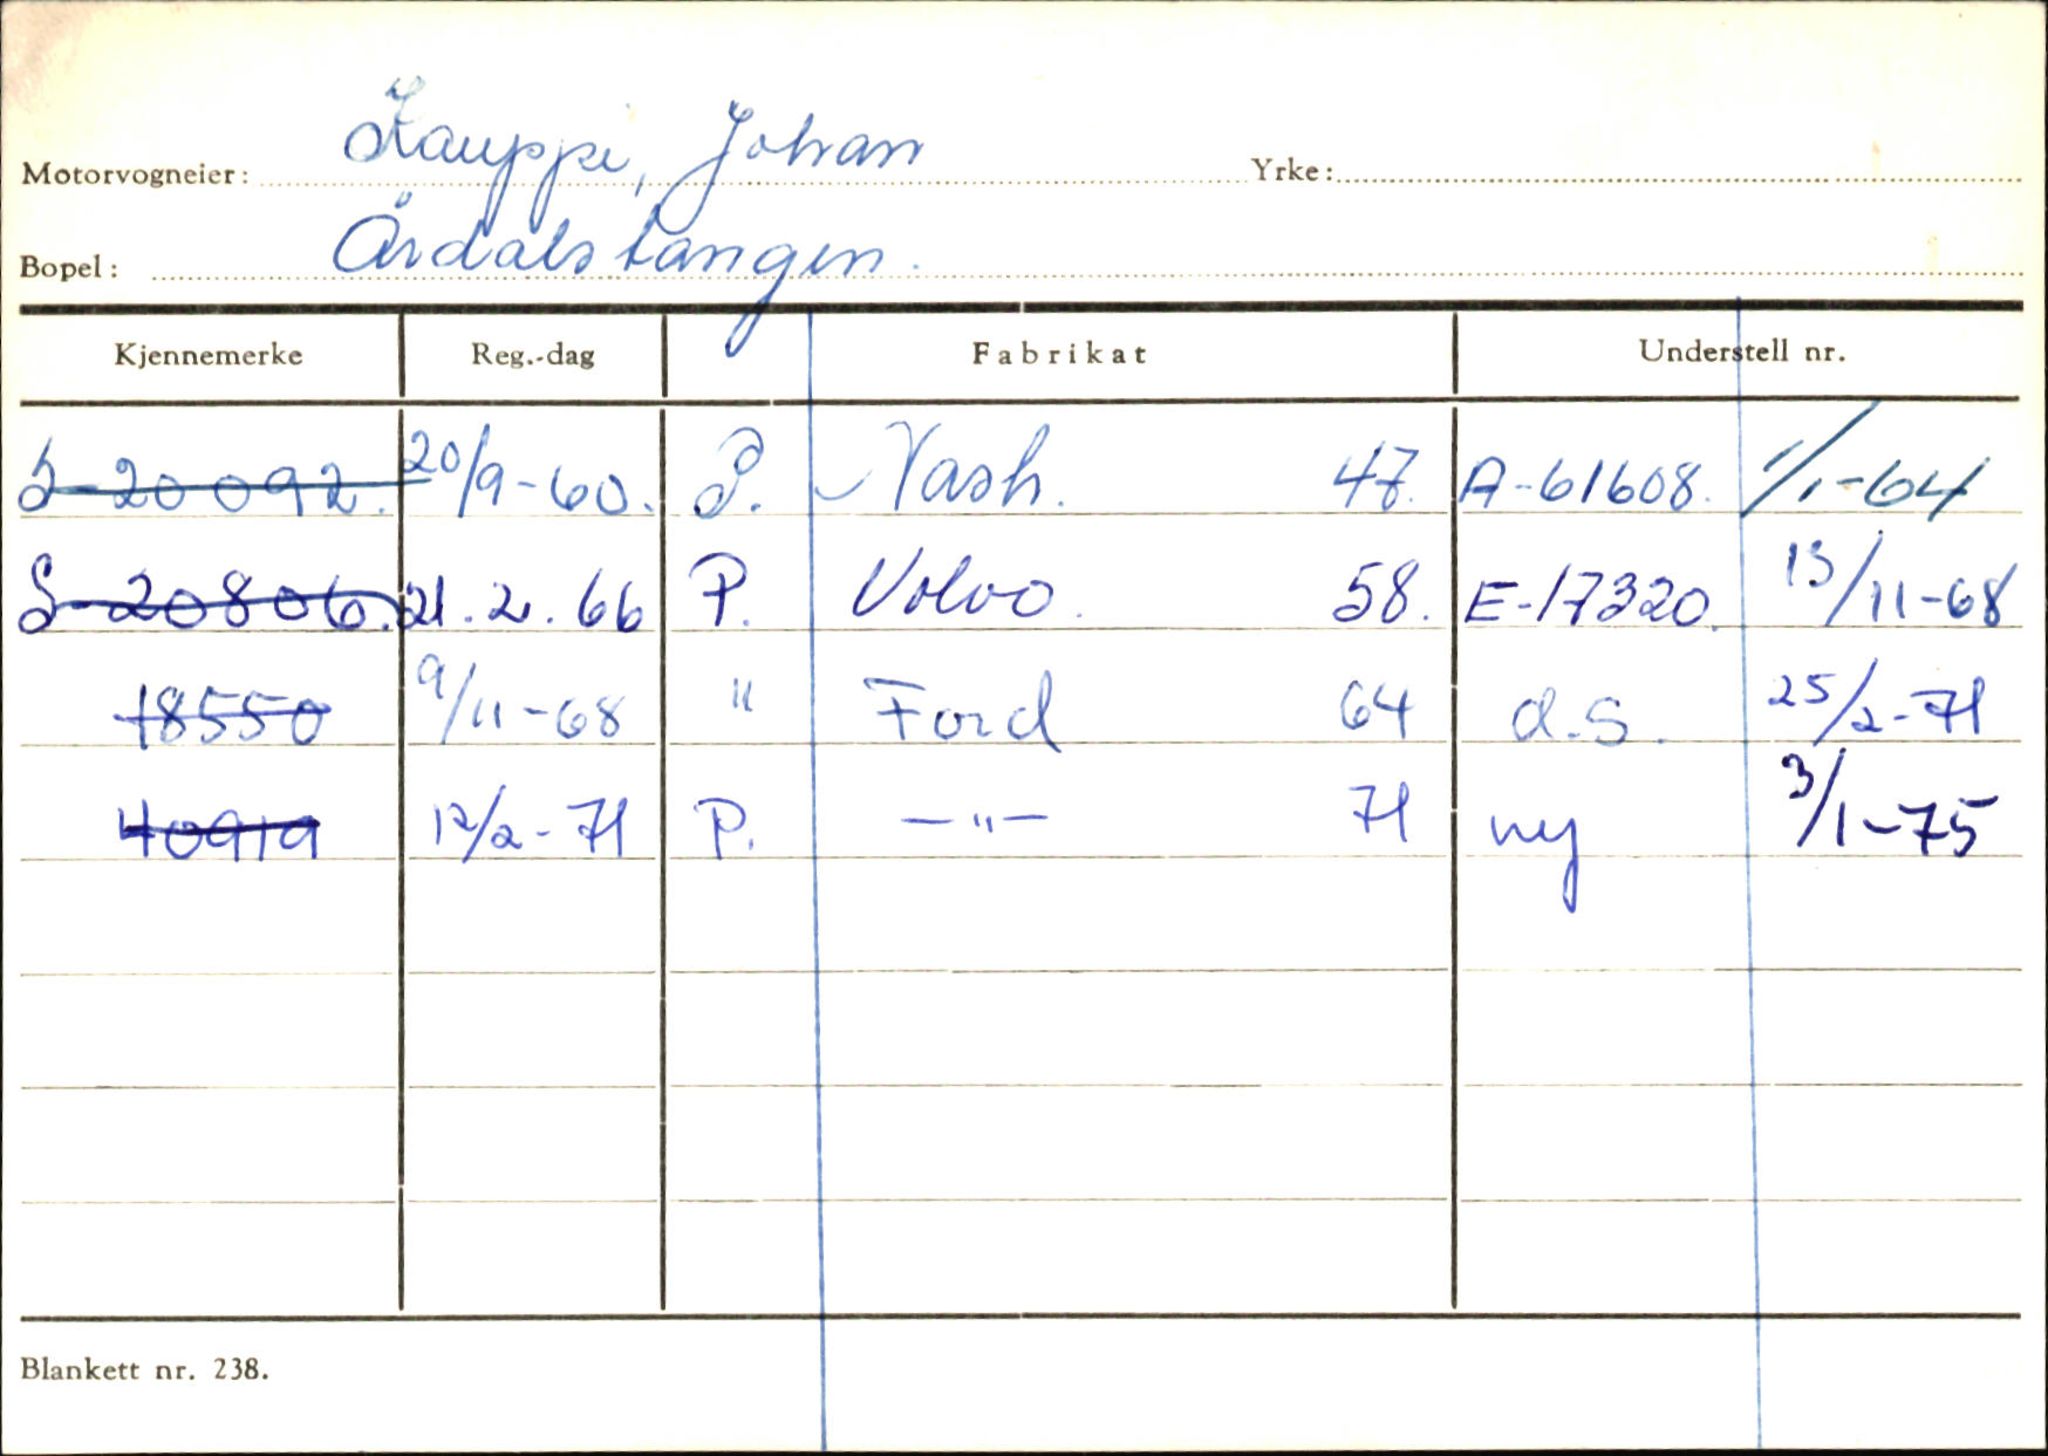 Motorvogneier: Kauppi, Johan Yrke:
Bopel: Årdalstangen.
Kjennemerke Reg.-dag Fabrikat Understell nr.
S-20092. 20/9-60. P. Nash. 47. A-61608. 1/1-64
S-20806. 21.2.66 P. Volvo. 58. E-17320. 13/11-68
18550 9/11-68 " Ford 64 d.s. 25/2-71
40919 12/2-71 P. —"— 71 ny 3/1-75
Blankett nr. 238.